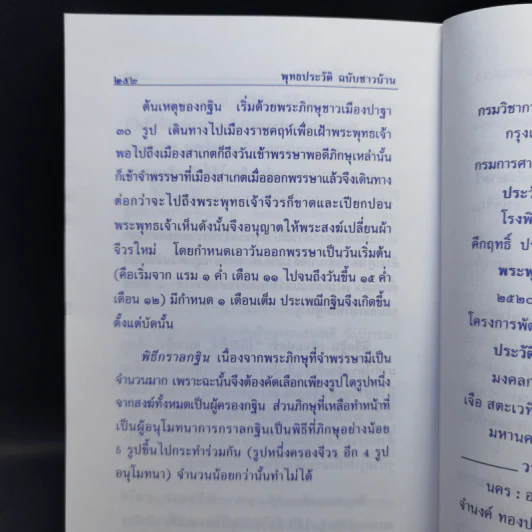 ๒๕๒ พุทธประวัติ ฉบับชาวบ้าน
ต้นเหตุของกฐิน เริ่มด้วยพระภิกษุชาวเมืองปาฐา
๓๐ รูป เดินทางไปเมืองราชคฤห์เพื่อเฝ้าพระพุทธเจ้า
พอไปถึงเมืองสาเกตก็ถึงวันเข้าพรรษาพอดีภิกษุเหล่านั้น
ก็เข้าจำพรรษาที่เมืองสาเกตเมื่อออกพรรษาแล้วจึงเดินทาง
ต่อกว่าจะไปถึงพระพุทธเจ้าจีวรก็ขาดและเปียกปอน
พระพุทธเจ้าเห็นดังนั้นจึงอนุญาตให้พระสงฆ์เปลี่ยนผ้า
จีวรใหม่ โดยกำหนดเอาวันออกพรรษาเป็นวันเริ่มต้น
(คือเริ่มจาก แรม ๑ ค่ำ เดือน ๑๑ ไปจนถึงวันขึ้น ๑๕ ค่ำ
เดือน ๑๒) มีกำหนด ๑ เดือนเต็ม ประเพณีกฐินจึงเกิดขึ้น
ตั้งแต่บัดนั้น
พิธีกราลกฐิน เนื่องจากพระภิกษุที่จำพรรษามีเป็น
จำนวนมาก เพราะฉะนั้นจึงต้องคัดเลือกเพียงรูปใดรูปหนึ่ง
จากสงฆ์ทั้งหมดเป็นผู้ครองกฐิน ส่วนภิกษุที่เหลือทำหน้าที่
เป็นผู้อนุโมทนาการกราลกฐินเป็นพิธีที่ภิกษุอย่างน้อย
๕ รูปขึ้นไปกระทำร่วมกัน (รูปหนึ่งครองจีวร อีก ๔ รูป
อนุโมทนา) จำนวนน้อยกว่านั้นทำไม่ได้
กรมวิชากา
กรุงเ
กรมการศา
ประวั
โรงพิ
คึกฤทธิ์ ป
พระพุ
๒๕๒๐
โครงการพัต
ประวัติ
มงคลก
เจือ สตะเวที
มหานค
ว
นคร : อ
จำนงค์ ทองป